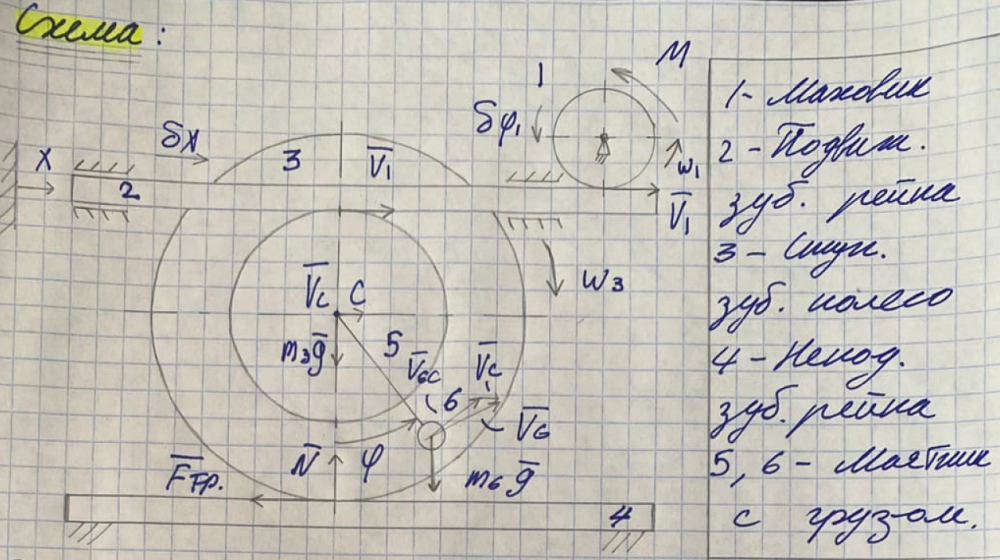 Схема:
М
1
δφ₁
δX
X
3
V̅₁
2
ω₁
V̅₁
ω₃
V̅c C
m₃g̅
5
V̅6c
V̅c
6
V̅6
N̅ φ
m₆g̅
F̅тр.
4
1- Маховик
2 - Подвиж.
зуб. рейка
3 - Ступ.
зуб. колесо
4 - Непод.
зуб. рейка
5, 6 - Маятник
с грузом.